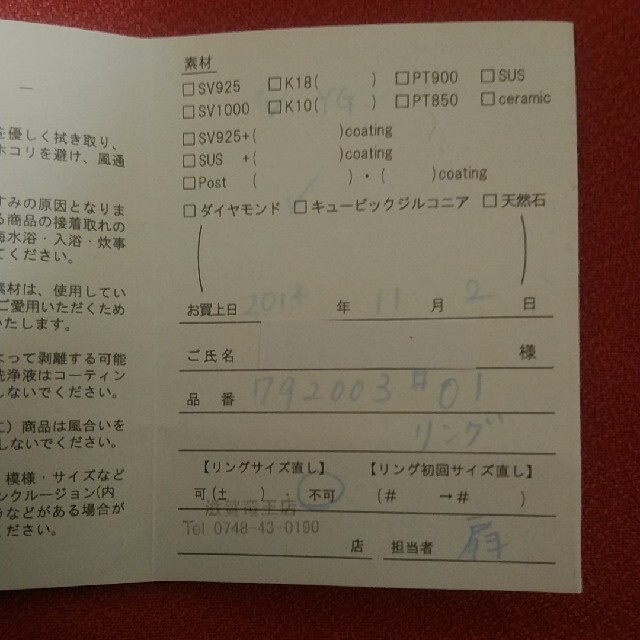 を優しく拭き取り、
ホコリを避け、風通
すみの原因となりま
る商品の接着取れの
海水浴・入浴・炊事
てください。
素材は、使用してい
ご愛用いただくため
いたします。
よって剥離する可能
洗浄液はコーティン
しないでください。
こ）商品は風合いを
しないでください。
模様・サイズなど
ンクルージョン(内
ラなどがある場合が
ください。
素材
□SV925 □K18( ) □PT900 □SUS
□SV1000 □K10( YG ) □PT850 □ceramic
□SV925+( )coating
□SUS +( )coating
□Post ( )・( )coating
□ダイヤモンド □キュービックジルコニア □天然石
( )
お買上日 2014 年 11 月 2 日
ご氏名 様
品 番 792003 #01
リング
【リングサイズ直し】 【リング初回サイズ直し】
可(± )・不可 (# →# )
滋賀竜王店
Tel 0748-43-0190
店 担当者